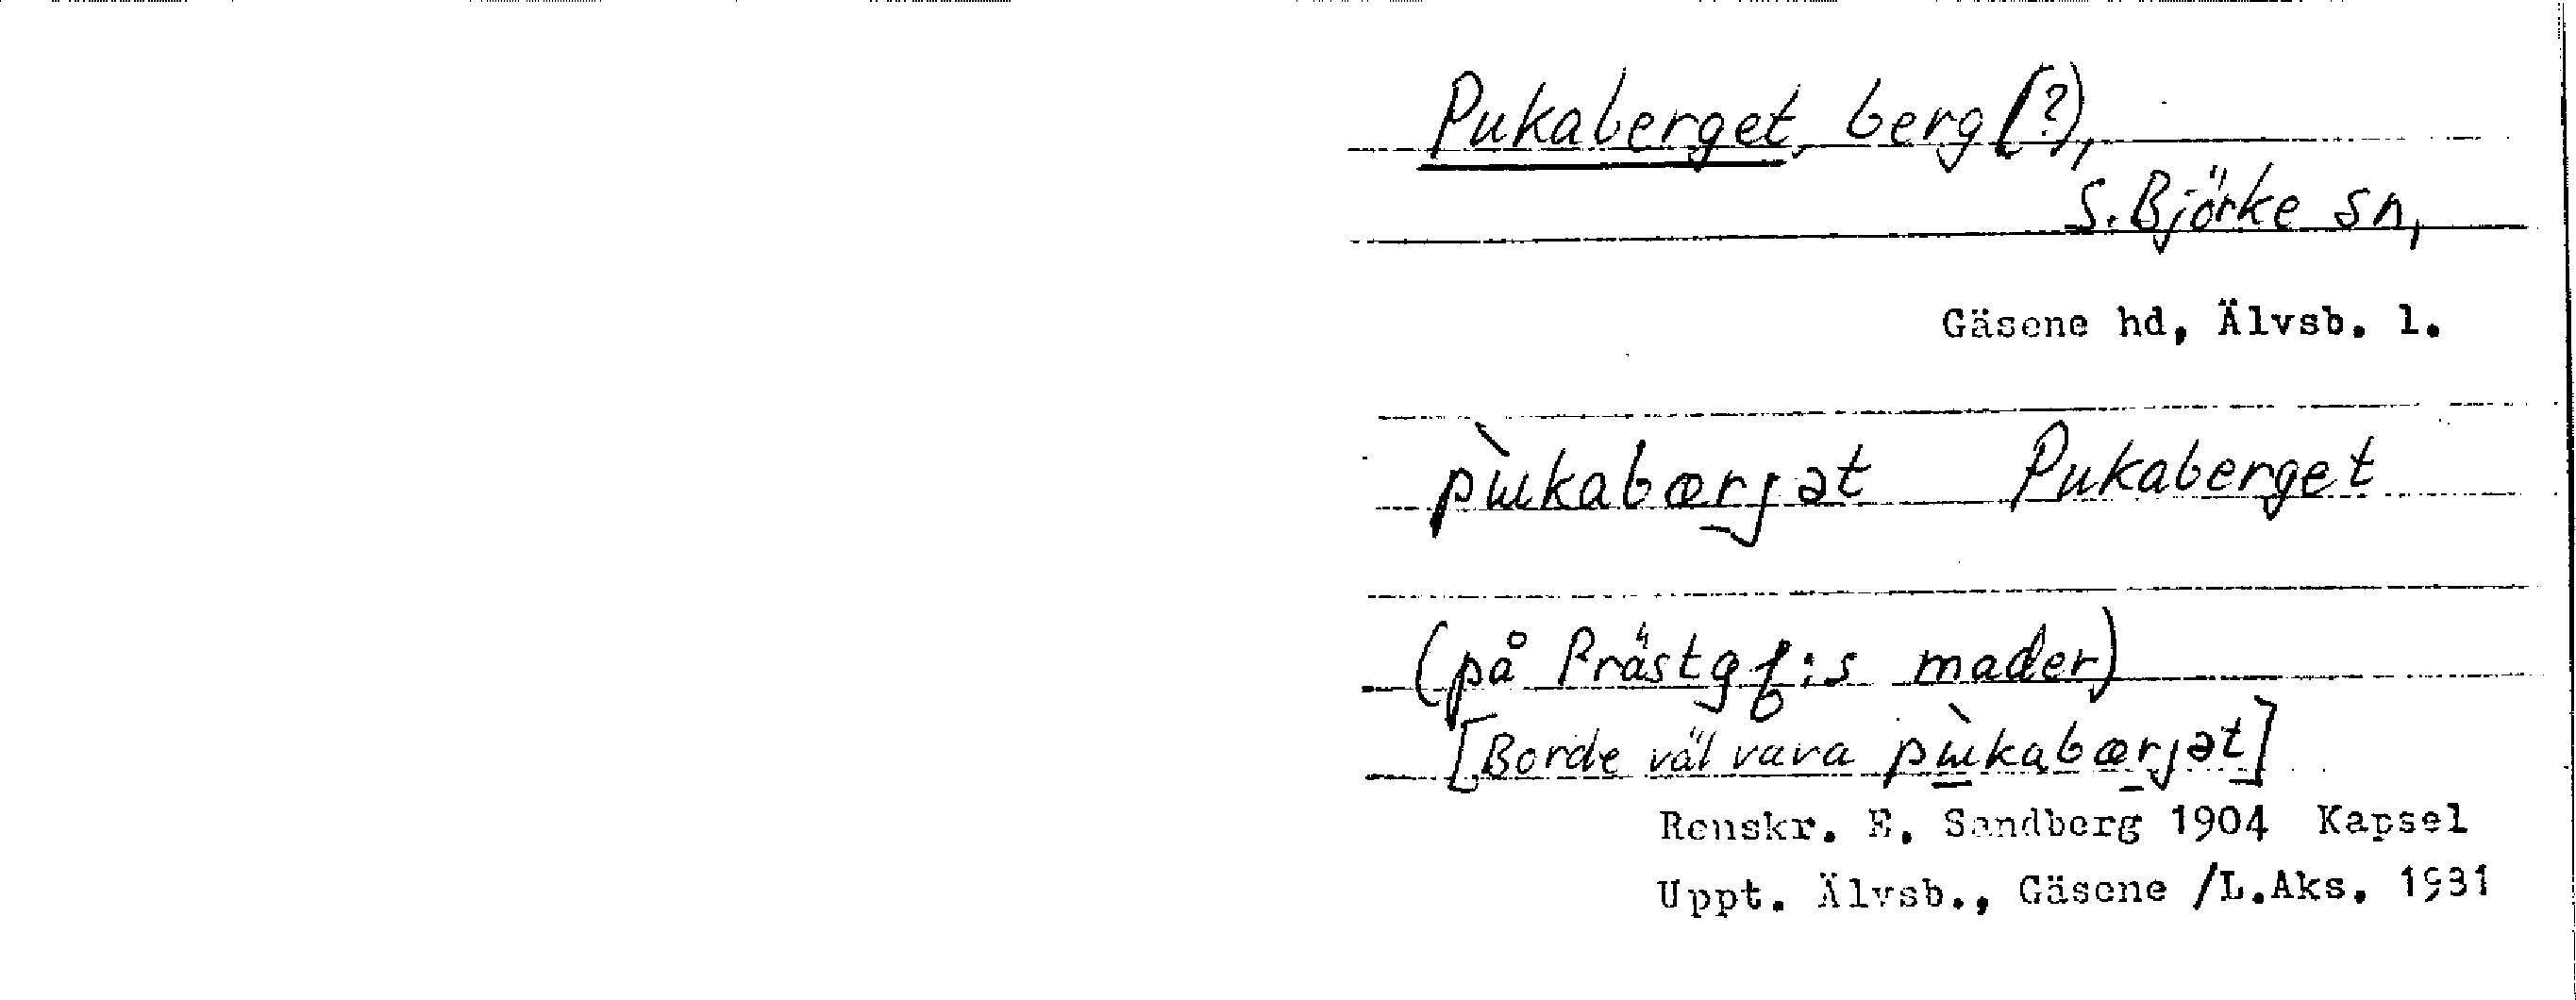 Pukaberget, berg (?),
S. Björke sn,
Gäsene hd, Älvsb. l.
pɯ̀kabærjət Pukaberget
(på Prästgf:s mader)
[Borde väl vara pɯ̀kabærjət]
Renskr. E. Sandberg 1904 Kapsel
Uppt. Älvsb., Gäsene /L.Aks. 1981